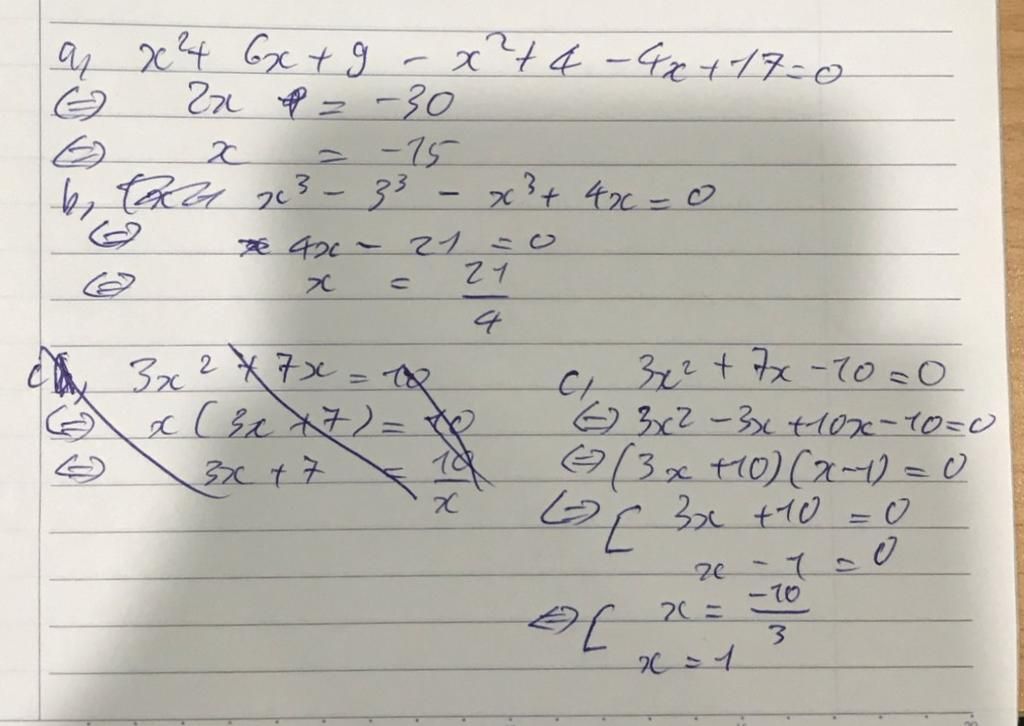 a, x²+ 6x + 9 - x² + 4 - 4x + 17 = 0
⇔ 2x = -30
⇔ x = -15
b, x³ - 3³ - x³ + 4x = 0
⇔ 4x - 21 = 0
⇔ x = 21/4
c, 3x² + 7x = 10
⇔ x(3x + 7) = 10
⇔ 3x + 7 = 10/x
c, 3x² + 7x - 10 = 0
⇔ 3x2 - 3x + 10x - 10 = 0
⇔ (3x + 10)(x - 1) = 0
⇔ [ 3x + 10 = 0
x - 1 = 0
⇔ [ x = -10/3
x = 1